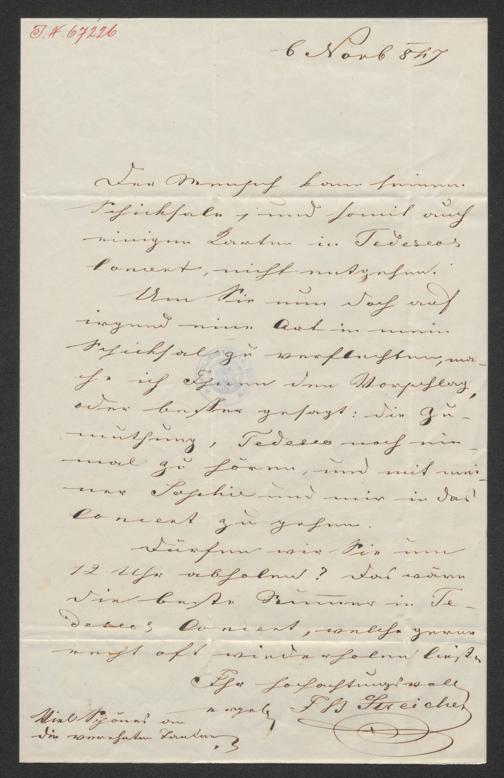 I.N. 67226
6 Novb 847
Der Mensch kann seinem
Schicksale, und somit auch
einigen Karten in Tedescos
Concert, nicht entgehen.
Um Sie nun doch auf
irgend eine Art in mein
Schicksal zu verflechten, ma-
che ich Ihnen den Vorschlag,
oder besser gesagt: die Zu-
muthung, Tedesco noch ein-
mal zu hören, und mit mei-
ner Sophie und mir in das
Concert zu gehen.
Dürfen wir Sie um
12 Uhr abholen? Das wäre
die beste Nummer in Te-
descos Concert, welche gerne
recht oft wiederholen ließe
Ihr hochachtungsvoll
ergeb. JB Streicher
Viel Schönes an
die verehrten Tanten